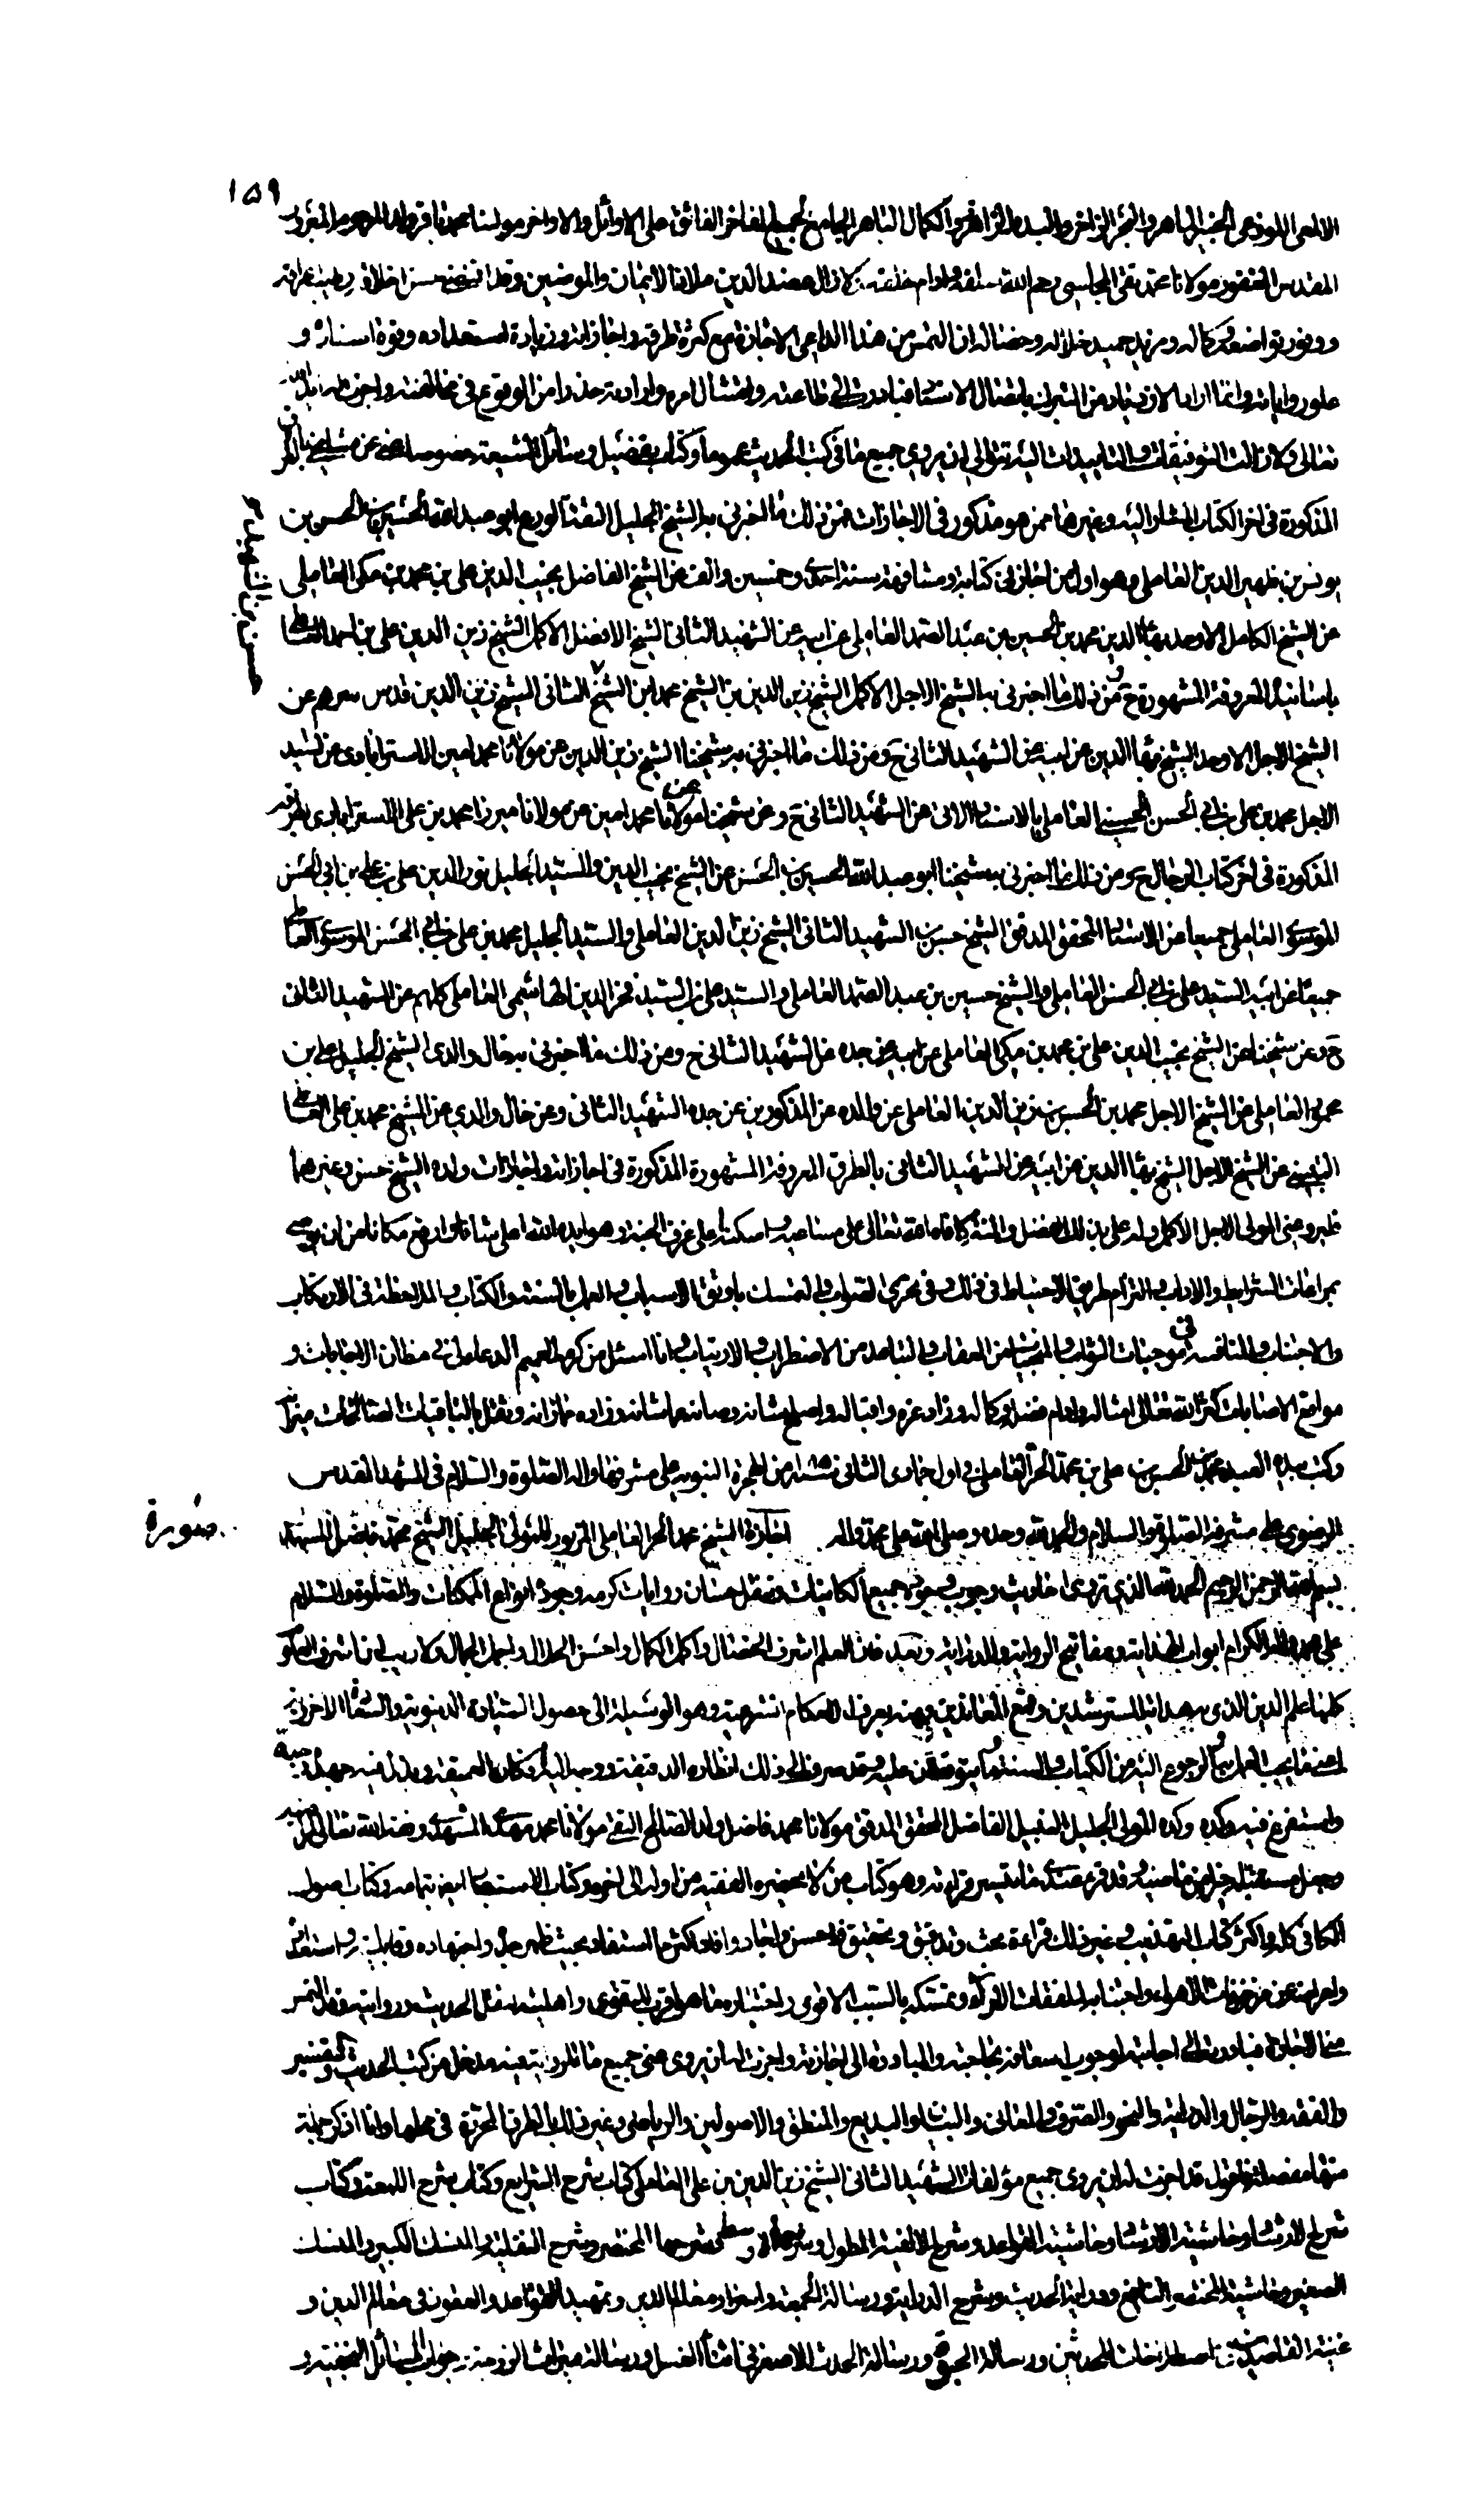 ١٥٩
الالمعي اللوذعي الحبر الماهر والبحر الزاخر والبدر الزاهر والكمال الباهر الجامع لجميع المفاخر الفائق على الاوائل والاواخر مولينا محمد باقر ولد المرحوم المبرور
المقدس المغفور مولانا محمد تقي المجلسي رحم الله سلفه وادام خلفه لا زال عضدا للدين ملاذا للايمان والمؤمنين وقد اقتضى حسن اخلاقه وطيب اعراقه
ووفور تواضعه وكماله ومزيد حميد خلاله وخصاله ان التمس من هذا الداعي الاجازة مع كثرة طرقه واجازاته وزيادة استعداده وقوة اسناده و
علو رواياته وانما اراد الازدياد من التبرك باتصال الاسناد فبادرت الى طاعته وامتثال امره وارادته حذرا من الوقوع في مخالفته واجزت له ايده الله
تعالى ولا زالت التوفيقات والتاييدات اليه تتوالى ان يروي جميع ما في كتب الحديث عموما وكتاب تفصيل وسائل الشيعة خصوصا عني عن مشايخي بالطرق
المذكورة في اخر الكتاب المشار اليه وغيرها مما هو مذكور في الاجازات فمن ذلك ما اخبرني به الشيخ الجليل الثقة الورع ابو عبد الله الحسين بن الحسن بن
يونس بن ظهير الدين العاملي وهو اول من اجازني كتابة ومشافهة سنة احدى وخمسين والف عن الشيخ الفاضل نجيب الدين علي بن محمد بن مكي العاملي
عن الشيخ الكامل الاوحد بهاء الدين محمد بن الحسين بن عبد الصمد العاملي عن ابيه عن الشهيد الثاني الشيخ الافضل الاكمل الشيخ زين الدين علي بن احمد العاملي
باسانيده المعروفة المشهورة ح ومن ذلك ما اخبرني به الشيخ الاجل الاكمل الشيخ زين الدين بن الشيخ محمد ابن الشيخ الثاني الشيخ زين الدين قدس سرهم عن
الشيخ الاجل الاوحد الشيخ بهاء الدين عن ابيه عن الشهيد الثاني ح ومن ذلك ما اخبرني به شيخنا الشيخ زين الدين عن مولانا محمد امين الاسترابادي عن السيد
الاجل محمد بن علي بن ابي الحسن الحسيني العاملي بالاسناد الاتي عن الشهيد الثاني ح وعن شيخنا عن مولانا محمد امين عن مولانا ميرزا محمد بن علي الاسترابادي بطرقه
المذكورة في اخر كتاب الرجال ح ومن ذلك ما اخبرني به شيخنا ابو عبد الله الحسين بن الحسن عن الشيخ نجيب الدين والسيد الجليل نور الدين علي بن علي بن ابي الحسن
الموسوي العاملي جميعا عن الاستاد المحقق المدقق الشيخ حسن بن الشهيد الثاني الشيخ زين الدين العاملي والسيد الجليل محمد بن علي بن ابي الحسن الموسوي العاملي
جميعا عن ابيه السيد علي بن ابي الحسن العاملي والشيخ حسين بن عبد الصمد العاملي والسيد علي بن السيد فخر الدين الهاشمي العاملي كلهم عن الشهيد الثاني
ح وعن شيخنا عن الشيخ نجيب الدين علي بن محمد بن مكي العاملي عن ابيه عن جده عن الشهيد الثاني ح ومن ذلك ما اخبرني به خال والدي الشيخ الجليل علي بن
محمود العاملي عن الشيخ الاجل محمد بن الحسن بن زين الدين العاملي عن والده عن المذكورين عن جده الشهيد الثاني وعن خال والدي عن الشيخ محمد بن علي العاملي
التبنيني عن الشيخ الاجل الشيخ بهاء الدين عن ابيه عن الشهيد الثاني بالطرق المعروفة المشهورة المذكورة في اجازاته واجازات ولده الشيخ حسن وغيرهما
فليرو عني المولى الاجل الاكمل وله علي بذلك الفضل والمنة كافاه الله تعالى على مساعيه واسكنه اعلى غرف الجنة وهو ايده الله اعلى شانا وارفع مكانا من ان يوصى
بمراعات الشرايط والاداب والتزام طريق الاحتياط في ذلك وفي تحري الصواب والتمسك باوثق الاسباب والعمل بالسنة والكتاب والملاحظة في الارتكاب
والاجتناب والمنافسة في موجبات الثواب والمنجيات من العقاب والتباعد من الاضطراب والارتياب وانا اسئل من كرمه العميم الدعاء لي في مظان الاجابات و
مواقع الاصابات كثر الله تعالى امثاله وادام فضله وكماله وزاد عزه واقباله واصلح شانه وصانه عما شانه وزاده مما زانه وثقل بالباقيات الصالحات ميزانه
وكتب بيده العبد محمد بن الحسن بن علي بن محمد الحر العاملي في اول جمادى الثاني سنة من الهجرة النبوية على مشرفها واله الصلوة والسلام في المشهد المقدس
الرضوي على مشرفه الصلوة والسلام والحمد لله وحده وصلى الله على محمد واله اجازة الشيخ محمد الحر العاملي المزبور للمولى الجليل الشيخ محمد فاضل المشهدي
صورة
بسم الله الرحمن الرحيم الحمد لله الذي تروي احاديث وجوب وجوده جميع الكاينات وتنقل حسان روايات كرمه وجوده انواع الممكنات والصلوة والسلام
على محمد واله الكرام ابواب الهداية ومفاتيح الرواية والدراية وبعد فان العلم اشرف الخصال واكمل الكمال واحسن الخلال واجمل الجمال ولا ريب ان اشرف العلوم
كلها علم الدين الذي به هداية المسترشدين وقمع المعاندين وبه يعرف الاحكام الشرعية وهو الوسيلة الى حصول السيادة الدنيوية والسعادة الاخروية
واستفرغ فيه وكده وكده المولى الجليل النبيل الفاضل المحقق المدقق مولانا محمد فاضل ولد الصالح التقي مولانا محمد مهدي المشهدي وفقه الله تعالى
وجعل مستقبله خيرا من ماضيه وقد قرء عندي ما تيسر قرائته وهو كتاب من لا يحضره الفقيه من اوله الى اخره وكتاب الاستبصار ايضا بتمامه وكتاب اصول
الكافي كله واكثر كتاب التهذيب وغير ذلك قراءة بحث وتدقيق وتحقيق فاحسن واجاد وافاد اكثر مما استفاد بحيث ظهر جده واجتهاده وقابليته واستعداده
مني الاجازة فبادرت الى اجابته لوجوب اسعافه بحاجته والمبادرة الى اجازته واجزت له ان يروي عني جميع ما للرواية فيه مدخل من كتب الحديث والتفسير
والفقه والرجال والدراية والنحو والصرف والمعاني والبيان والبديع والمنطق والاصولين والرياضي وغير ذلك بالطرق المحررة في محلها وانا اذكر جملة
منها مفصلة فاقول قد اجزت له ان يروي جميع مؤلفات الشهيد الثاني الشيخ زين الدين بن علي العاملي كتاب شرح الشرايع وكتاب شرح اللمعة وكتاب
شرح الارشاد وحاشية الارشاد وحاشية القواعد وشرح الالفية المطول وشرحها الاوسط وشرحها المختصر وشرح النفلية والمنسك الكبير والمنسك
الصغير وحاشية المختصر النافع ودراية الحديث وشرح الدراية ورسالة الجمعة واسرار معالم الدين وتمهيد القواعد والعقود في معالم الدين و
غنية القاصدين في اصطلاحات المحدثين ورسالة الحبوة ورسالة الحدث الاصغر في اثناء الغسل ورسالة ميراث الزوجة وجواب المسائل النجفية و